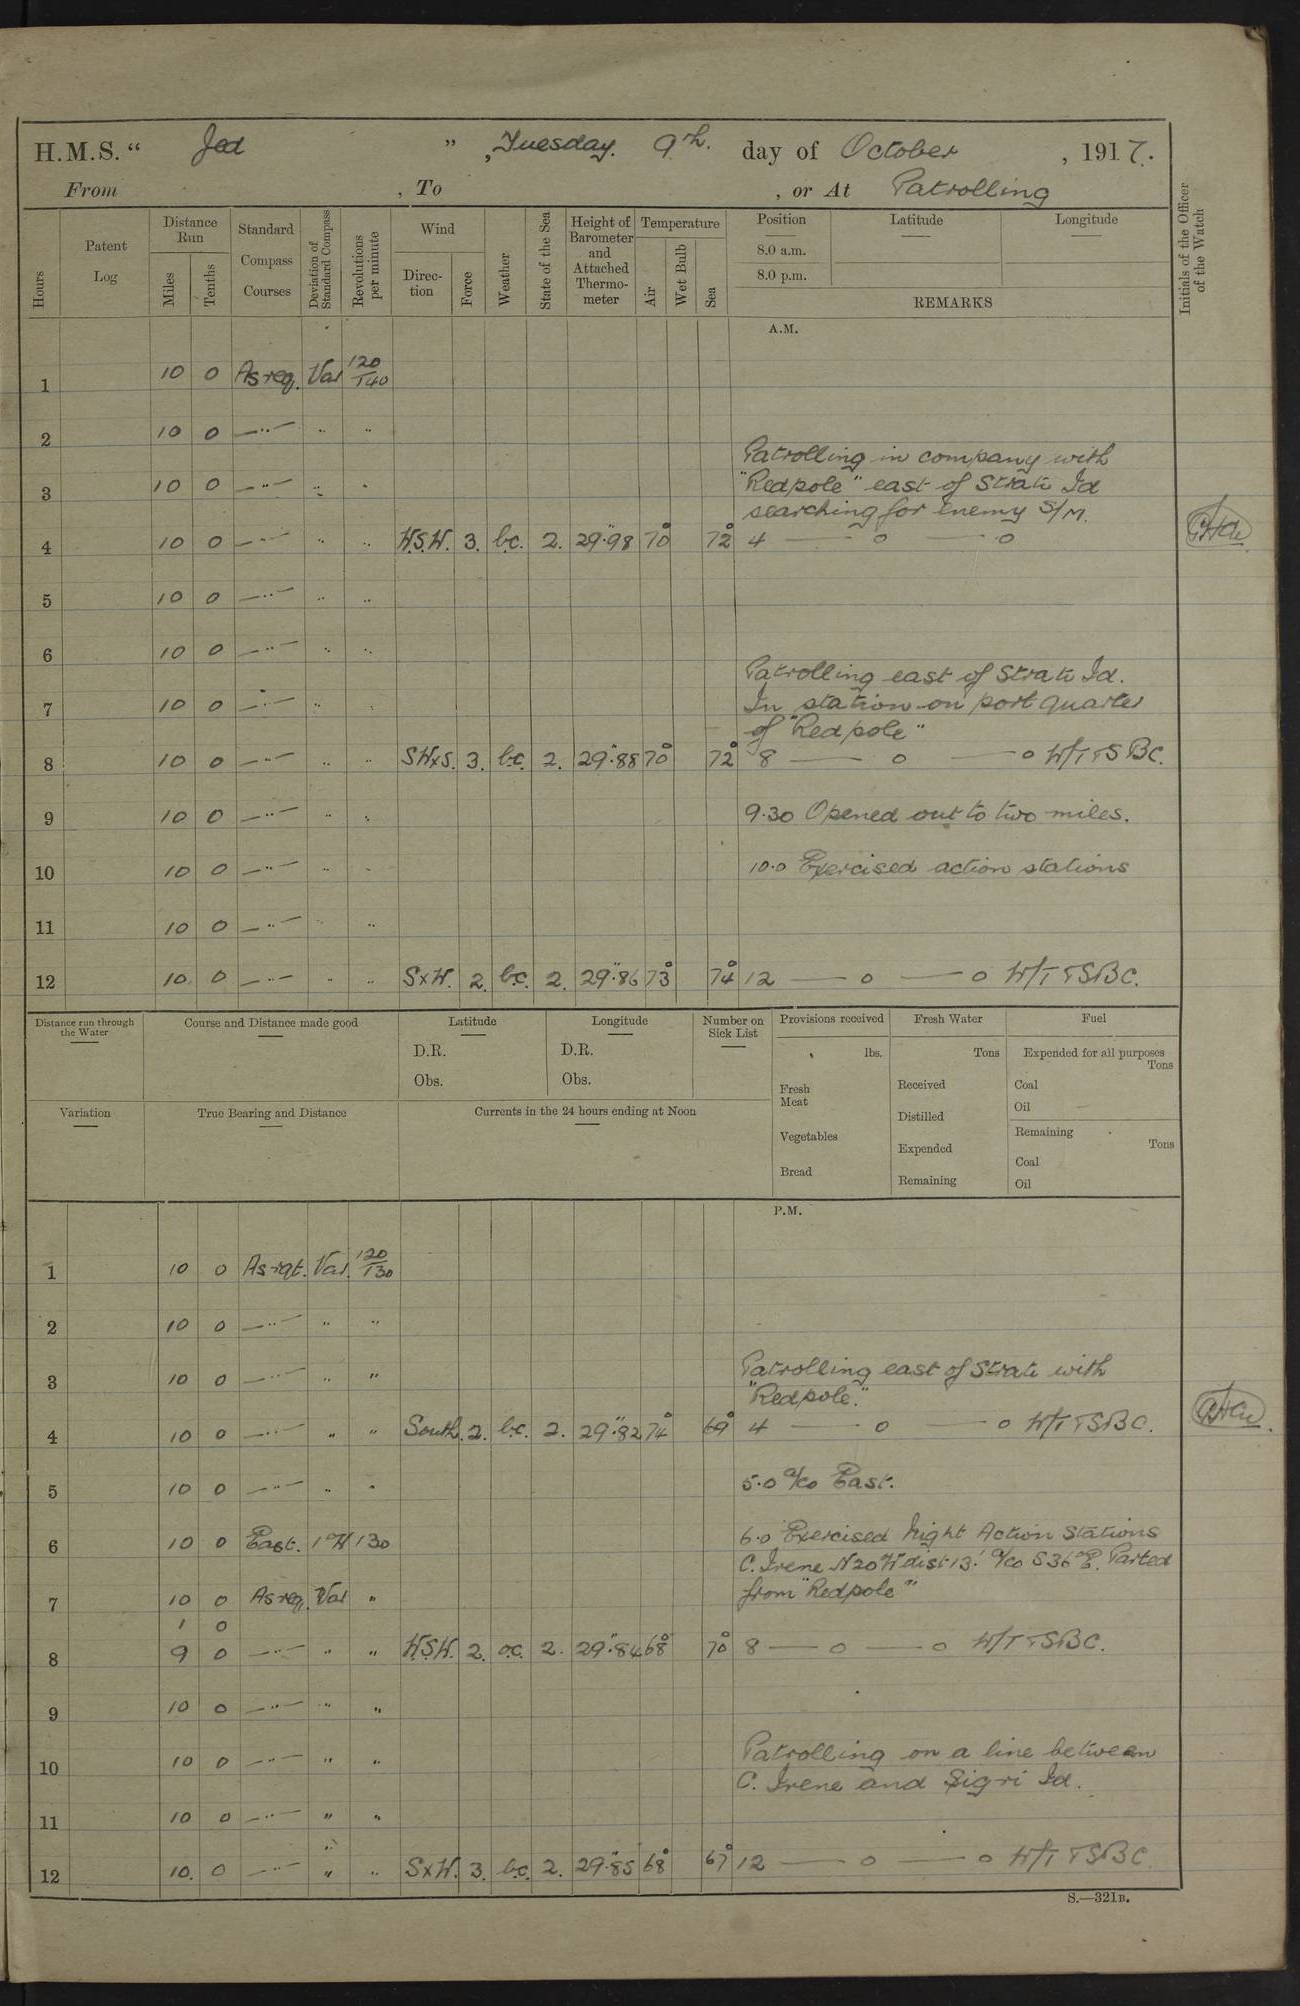 H.M.S. “ Jed ” , Tuesday. 9th. day of October , 1917.
From , To , or At Patrolling
Hours
Patent Log
Distance Run
Miles
Tenths
Standard Compass Courses
Deviation of Standard Compass
Revolutions per minute
Wind
Direction
Force
Weather
State of the Sea
Height of Barometer and Attached Thermometer
Temperature
Air
Wet Bulb
Sea
Position
8.0 a.m.
8.0 p.m.
Latitude
Longitude
REMARKS
Initials of the Officer of the Watch
A.M.
1 10 0 As req. Var 120/140
2 10 0 —"— " "
Patrolling in company with
3 10 0 —"— " " "Redpole" east of Strati Id
searching for enemy S/M.
4 10 0 —"— " " W.S.W. 3. bc. 2. 29.98 70° 72° 4 — o — o
5 10 0 —"— " "
6 10 0 —"— " "
Patrolling east of Strati Id.
7 10 0 —"— " " In station on port quarter
of "Redpole"
8 10 0 —"— " " SWxS. 3. bc. 2. 29.88 70° 72° 8 — o — o W/T TSBC.
9 10 0 —"— " " 9.30 Opened out to two miles.
10 10 0 —"— " " 10.0 Exercised action stations
11 10 0 —"— "
12 10 0 —"— " " SxW. 2. bc. 2. 29.86 73° 74° 12 — o — o W/T TSBC.
Distance run through the Water
Course and Distance made good
Latitude
D.R.
Obs.
Longitude
D.R.
Obs.
Number on Sick List
Provisions received
lbs.
Fresh Meat
Vegetables
Bread
Fresh Water
Tons
Received
Distilled
Expended
Remaining
Fuel
Expended for all purposes
Tons
Coal
Oil
Remaining
Tons
Coal
Oil
Variation
True Bearing and Distance
Currents in the 24 hours ending at Noon
P.M.
1 10 0 As rqt. Var. 120/130
2 10 0 —"— " "
3 10 0 —"— " " Patrolling east of Strati with
"Redpole".
4 10 0 —"— " " South. 2. bc. 2. 29.82 74° 69° 4 — o — o W/T TSBC.
5 10 0 —"— " " 5.0 a/co East.
6 10 0 East. 1°W 130 6.0 Exercised Night Action Stations
C. Irene N20°W dist 13' a/co S36°E. Parted
7 10 0 As req. Var " from "Redpole"
1 0
8 9 0 —"— " " W.S.W. 2. oc. 2. 29.84 68° 70° 8 — o — o W/T TSBC.
9 10 0 —"— " "
10 10 0 —"— " " Patrolling on a line between
C. Irene and Sigri Id.
11 10 0 —"— " "
12 10. 0 —"— " " SxW. 3. bc. 2. 29.85 68° 67° 12 — o — o W/T TSBC.
S.—321B.